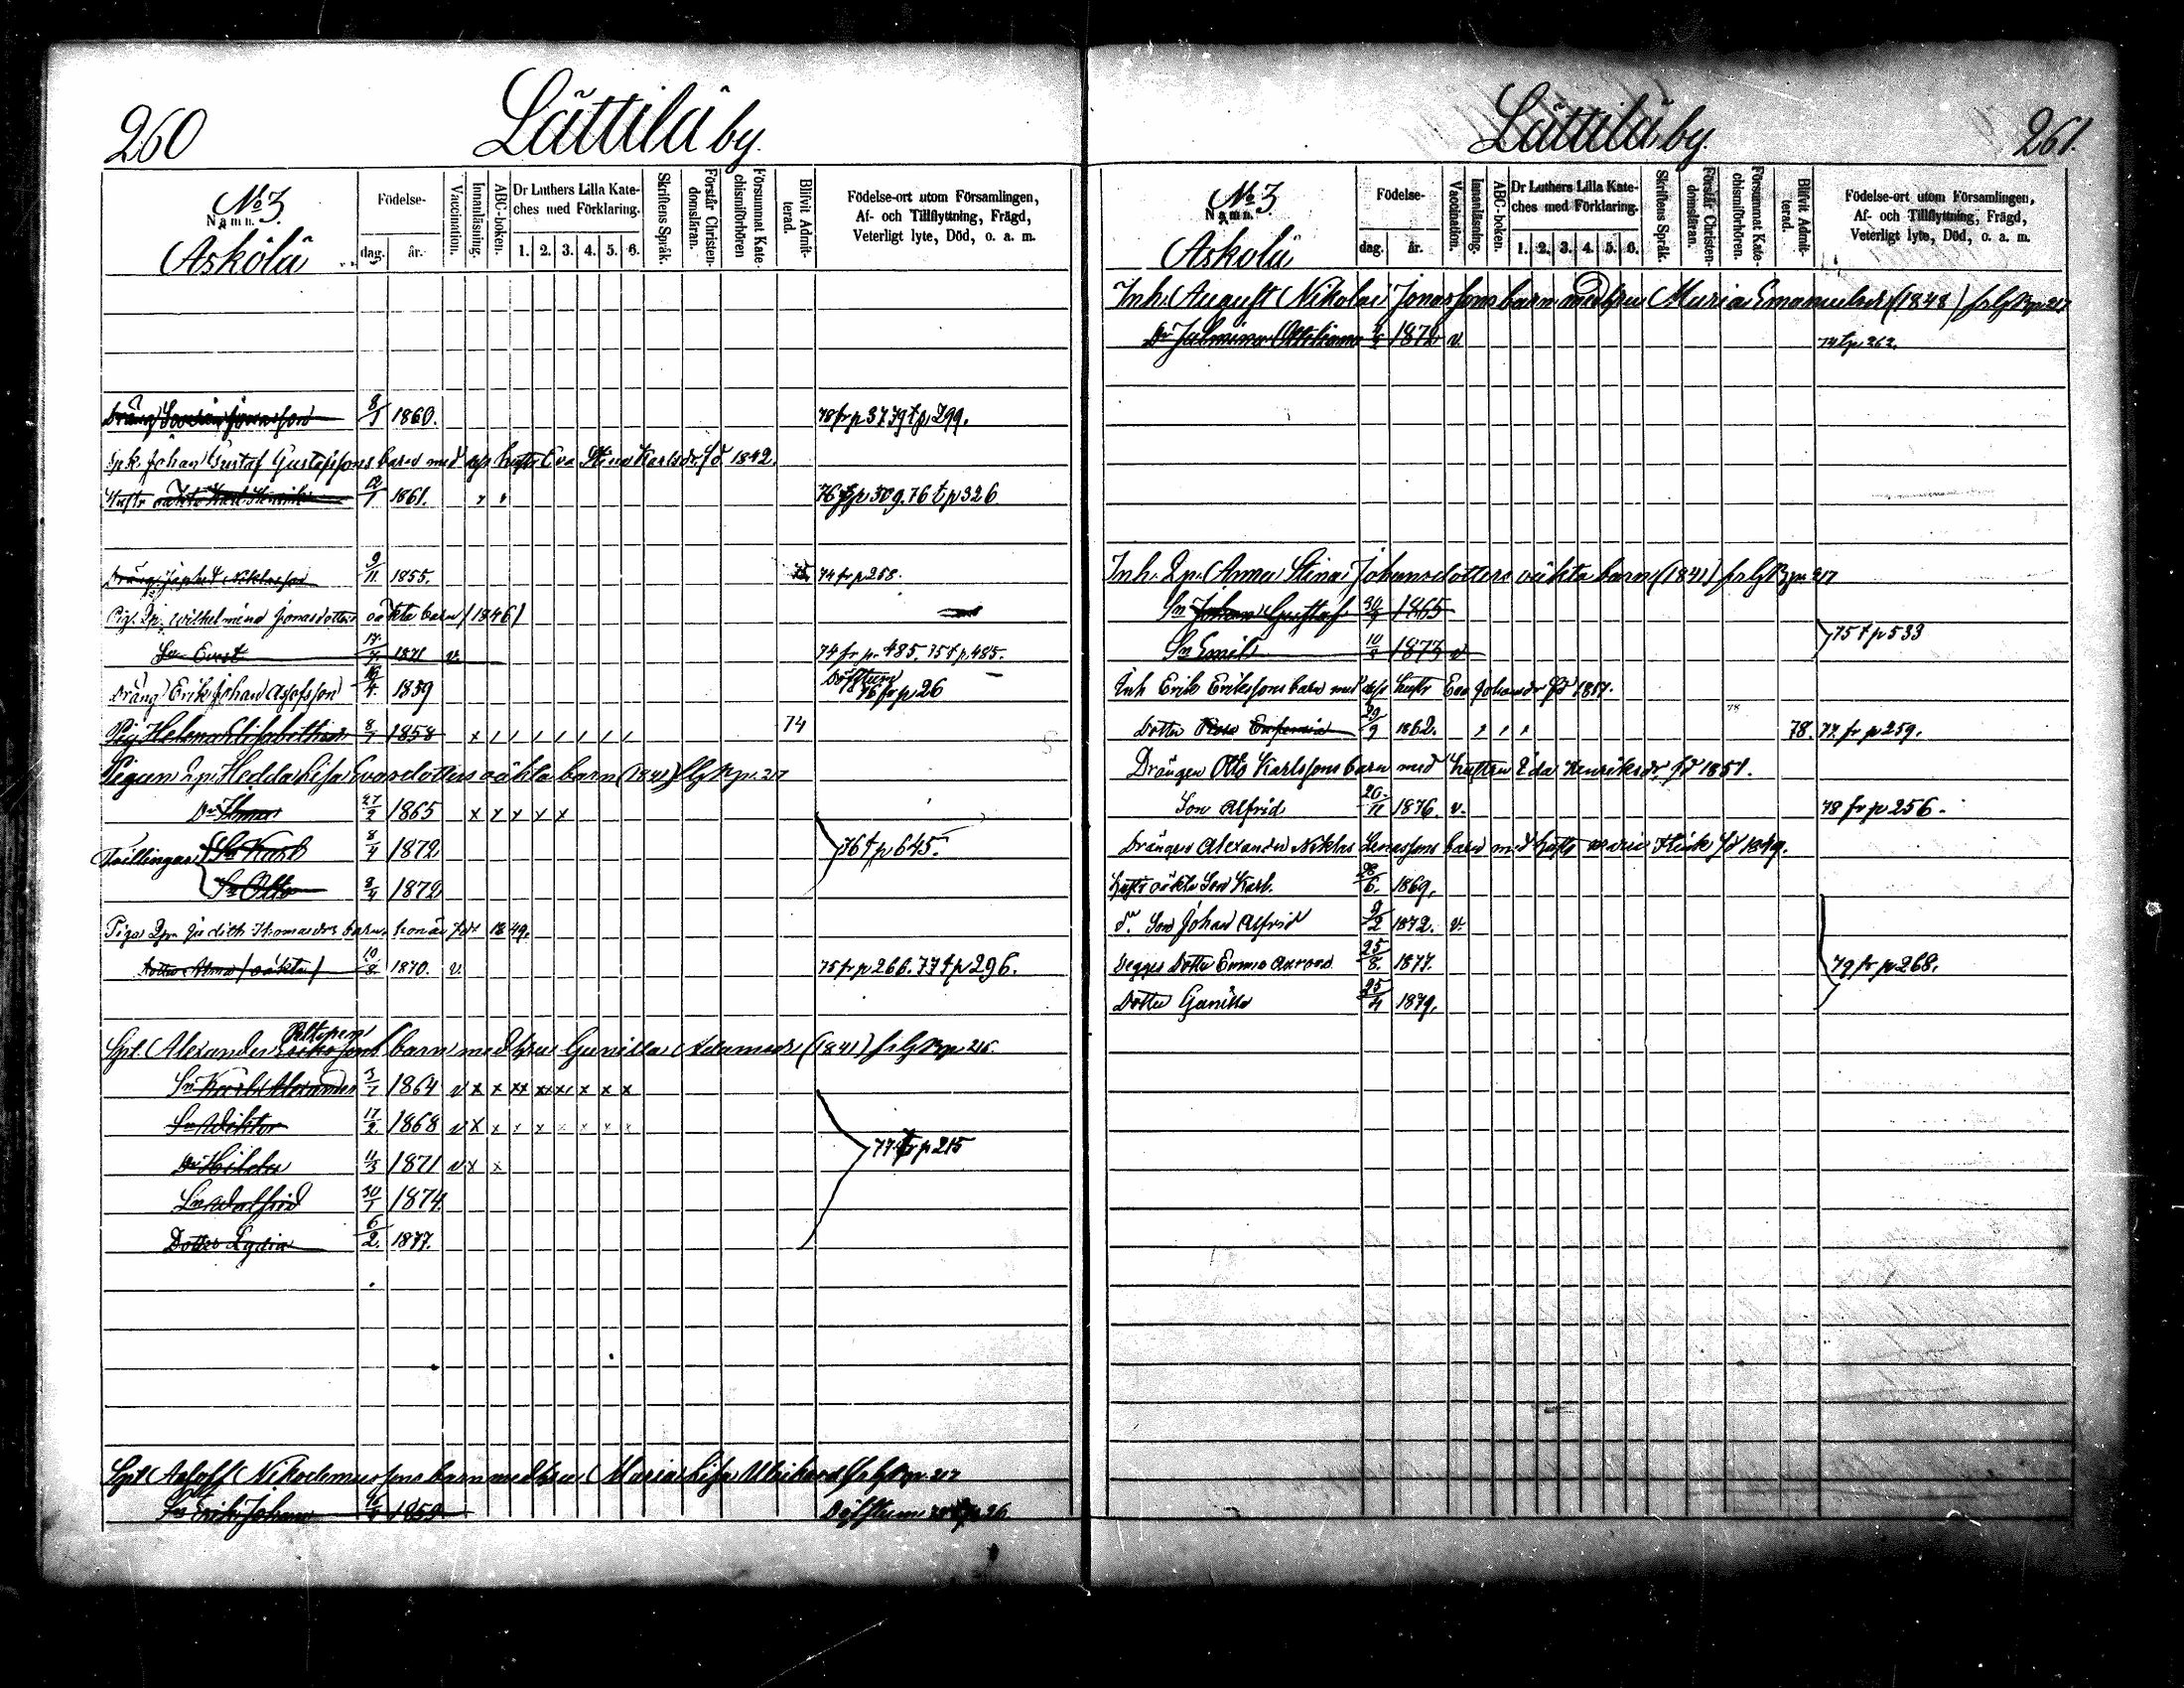 260
Lättilä by.
No 3.
Namn.
Askola
Födelse-
dag.
år.
Vaccination.
Innanläsning.
ABC-boken.
Dr Luthers Lilla Kate-
ches med Förklaring.
1. 2. 3. 4. 5. 6.
Skriftens Språk.
Förstår Christen-
domsläran.
Försummat Kate-
chismiförhören
Blifvit Admit-
terad.
Födelse-ort utom Församlingen,
Af- och Tillflyttning, Frägd,
Veterligt lyte, Död, o. a. m.
Dräng 8/1 1860. 78 fr p 37 79 t p 299.
Johan Gustaf Gustafssons barn med hustr Eva Stina Karlsdr fd 1842.
Hustr oäkta Karl Henrik 12/1 1861. 76 p 309. 76 t p 326
Dräng Niklasson 9/11 1855. 75 74 fr p 258.
Pig. Lp. Wilhelmina Jonasdotters oäkta barn (1846)
Sn Evert 17/4 1871 v. 74 fr p. 485. 75 t p. 485.
Dräng Erik Johan 16/4 1859 76 fr p 26
Pig. Helena Elisabeth 8/7 1858 x 74
Pigan Lp. Hedda Lisa Evasdotters oäkta barn (1842) p. 217
Dr 27/2 1865 x x x x x
Tvillingar Sn Karl 8/4 1872 76 t p 645.
Sn Otto 8/4 1872
Pigan Lpn Judith Thomasdrs barn, hon är född 1849.
Dotter Alma (oäkta) 10/8 1870. v. 75 fr p 266. 77 t p 296.
Spl. Alexander Erikssons barn med hru Gunilla Adamsdr (1841) p. 216.
Sn Karl Alexander 3/7 1864 v x x xx xx x x x x
Sn Wiktor 17/2 1868 v x x x x x x x x
Dr Hilda 11/3 1871 v x x 77 p 215
Sn Walfrid 30/1 1874.
Dotter Lydia 6/2. 1877.
Spl. Adolf Nikodemussons barn med hru Maria Lisa p. 217
Sn Erik Johan 16/4 1859 p. 26.
Lättilä by.
261.
No 3
Namn.
Askola
Födelse-
dag.
år.
Vaccination.
Innanläsning.
ABC-boken.
Dr Luthers Lilla Kate-
ches med Förklaring.
1. 2. 3. 4. 5. 6.
Skriftens Språk.
Förstår Christen-
domsläran.
Försummat Kate-
chismiförhören.
Blifvit Admit-
terad.
Födelse-ort utom Församlingen,
Af- och Tillflyttning, Frägd,
Veterligt lyte, Död, o. a. m.
Inh. August Nikolai Jonassons barn med hru Maria Emanuelsdr (1848) p. 217
Dr Ottiliana 1872 v. 74 t p 262.
Inh. Lp. Anna Stina Johansdotters oäkta barn (1841) p. 217
Sn Johan Gustaf 1865
Sn Emil 1873 v 75 t p 533
Inh Erik Erikssons barn med hustr Eva Johansdr fd 1817.
78
Dotter Eufemia 29/9 1862. 78. 77 fr p 259.
Drängen Otto Karlssons barn med hustrun Ida Henriksdr fd 1851.
Son Alfrid 20/11 1876. v. 78 fr p 256.
Drängen Alexander Niklas barn med hustr Maria fd 1849.
hustr oäkta Son Karl. 28/6. 1869.
do Son Johan Alfrid 9/2 1872. v.
Begges Dotter Emma Aurora 25/8. 1877. 79 fr p 268.
Dotter Gunilla 1879.